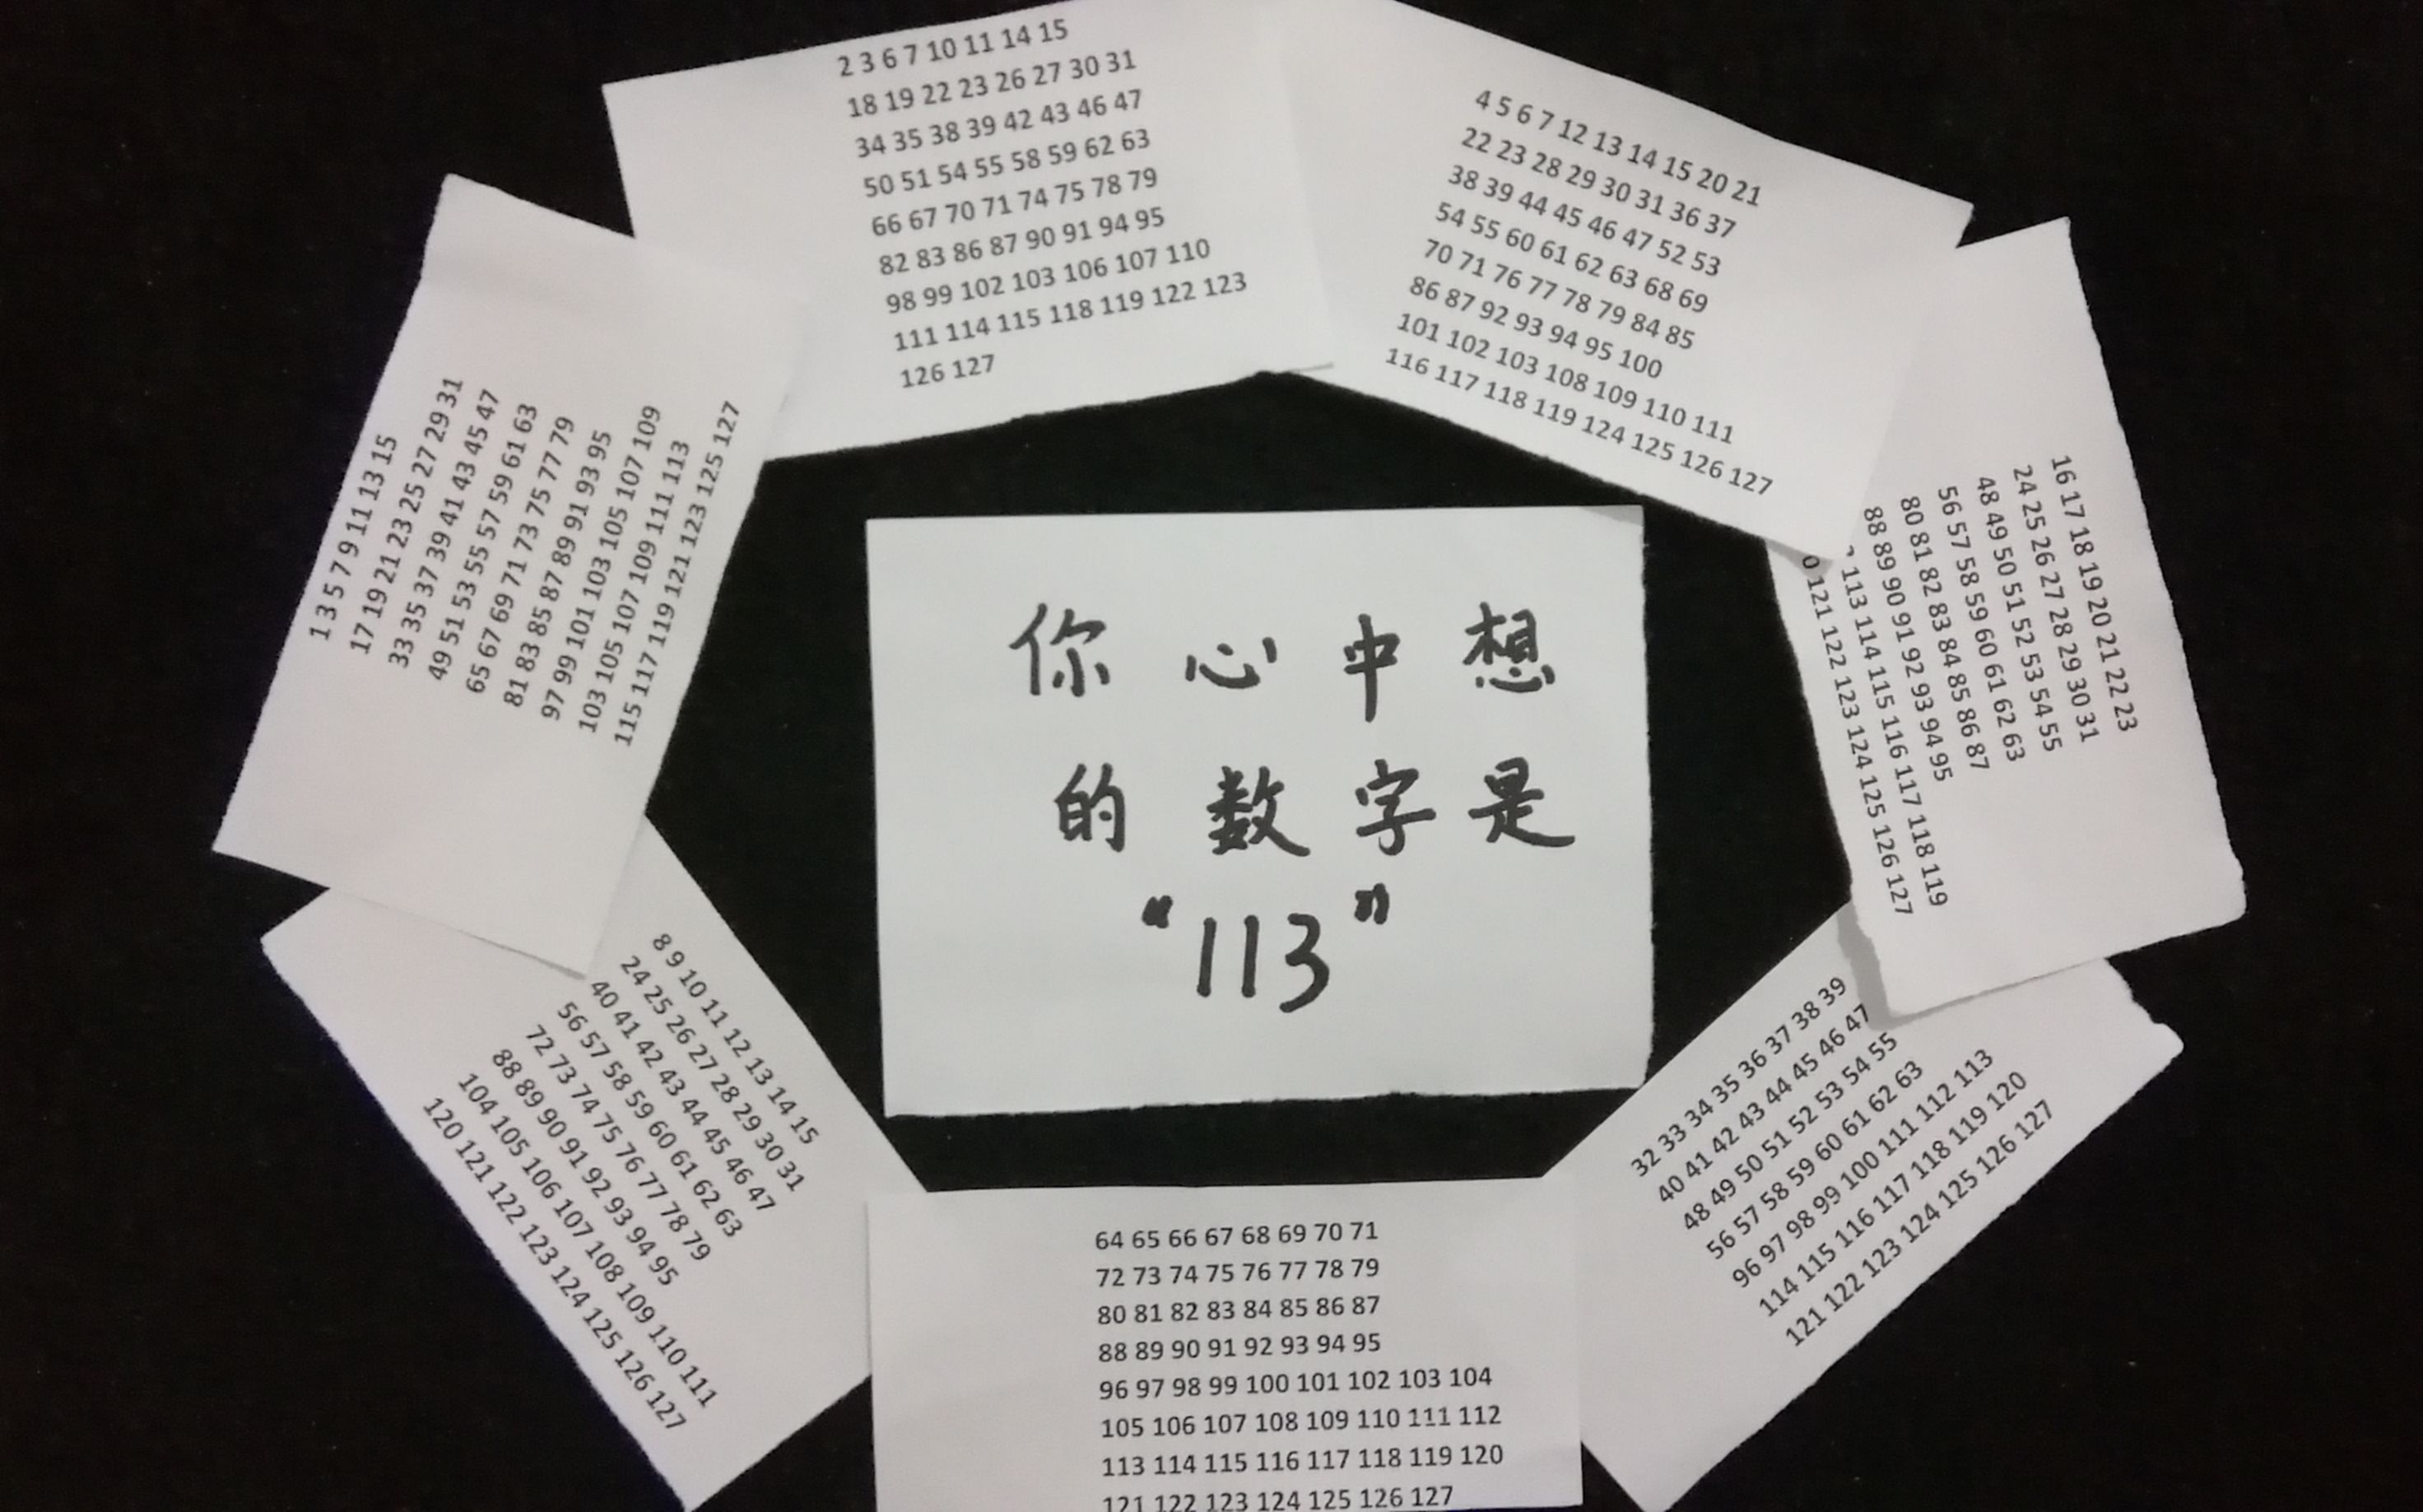 2 3 6 7 10 11 14 15
18 19 22 23 26 27 30 31
34 35 38 39 42 43 46 47
50 51 54 55 58 59 62 63
66 67 70 71 74 75 78 79
82 83 86 87 90 91 94 95
98 99 102 103 106 107 110
111 114 115 118 119 122 123
126 127
4 5 6 7 12 13 14 15 20 21
22 23 28 29 30 31 36 37
38 39 44 45 46 47 52 53
54 55 60 61 62 63 68 69
70 71 76 77 78 79 84 85
86 87 92 93 94 95 100
101 102 103 108 109 110 111
116 117 118 119 124 125 126 127
16 17 18 19 20 21 22 23
24 25 26 27 28 29 30 31
48 49 50 51 52 53 54 55
56 57 58 59 60 61 62 63
80 81 82 83 84 85 86 87
88 89 90 91 92 93 94 95
113 114 115 116 117 118 119
0 121 122 123 124 125 126 127
1 3 5 7 9 11 13 15
17 19 21 23 25 27 29 31
33 35 37 39 41 43 45 47
49 51 53 55 57 59 61 63
65 67 69 71 73 75 77 79
81 83 85 87 89 91 93 95
97 99 101 103 105 107 109
103 105 107 109 111 113
115 117 119 121 123 125 127
你心中想
的数字是
“113”
8 9 10 11 12 13 14 15
24 25 26 27 28 29 30 31
40 41 42 43 44 45 46 47
56 57 58 59 60 61 62 63
72 73 74 75 76 77 78 79
88 89 90 91 92 93 94 95
104 105 106 107 108 109 110 111
120 121 122 123 124 125 126 127
32 33 34 35 36 37 38 39
40 41 42 43 44 45 46 47
48 49 50 51 52 53 54 55
56 57 58 59 60 61 62 63
96 97 98 99 100 111 112 113
114 115 116 117 118 119 120
121 122 123 124 125 126 127
64 65 66 67 68 69 70 71
72 73 74 75 76 77 78 79
80 81 82 83 84 85 86 87
88 89 90 91 92 93 94 95
96 97 98 99 100 101 102 103 104
105 106 107 108 109 110 111 112
113 114 115 116 117 118 119 120
121 122 123 124 125 126 127